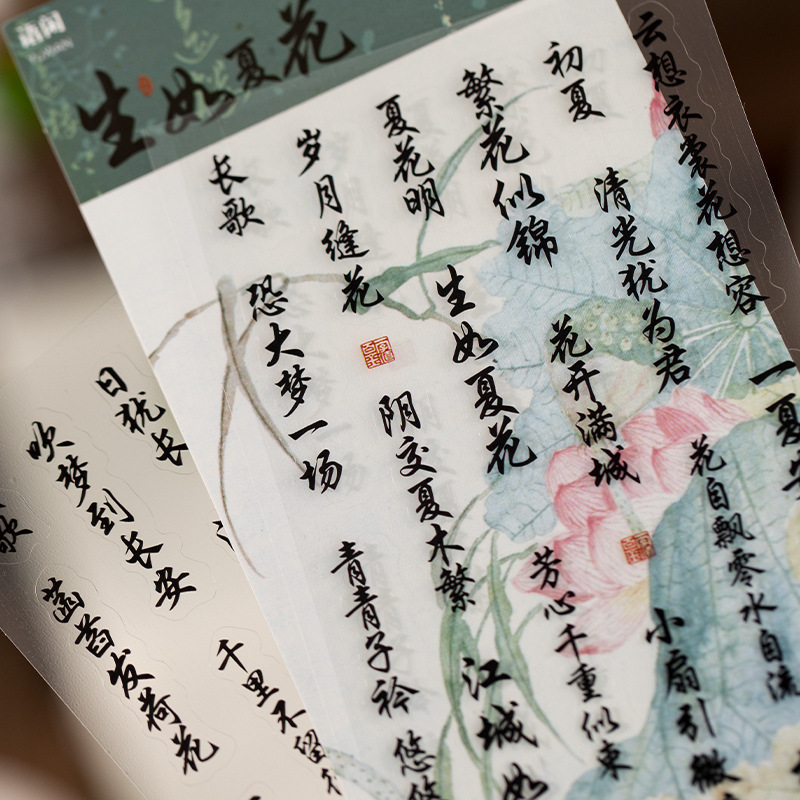 生如夏花
云想衣裳花想容
一夏
初夏
清光犹为君
花自飘零水自流
繁花似锦
花开满城
小扇引微
夏花明
生如夏花
芳心千重似束
岁月缝花
阴交夏木繁
江城如
长歌
恐大梦一场
青青子衿 悠悠
日犹长
吹梦到长安
千里不留
菡萏发荷花
歌